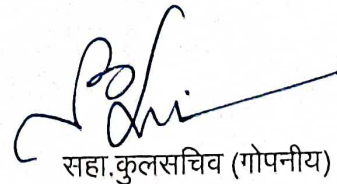 सहा.कुलसचिव (गोपनीय)